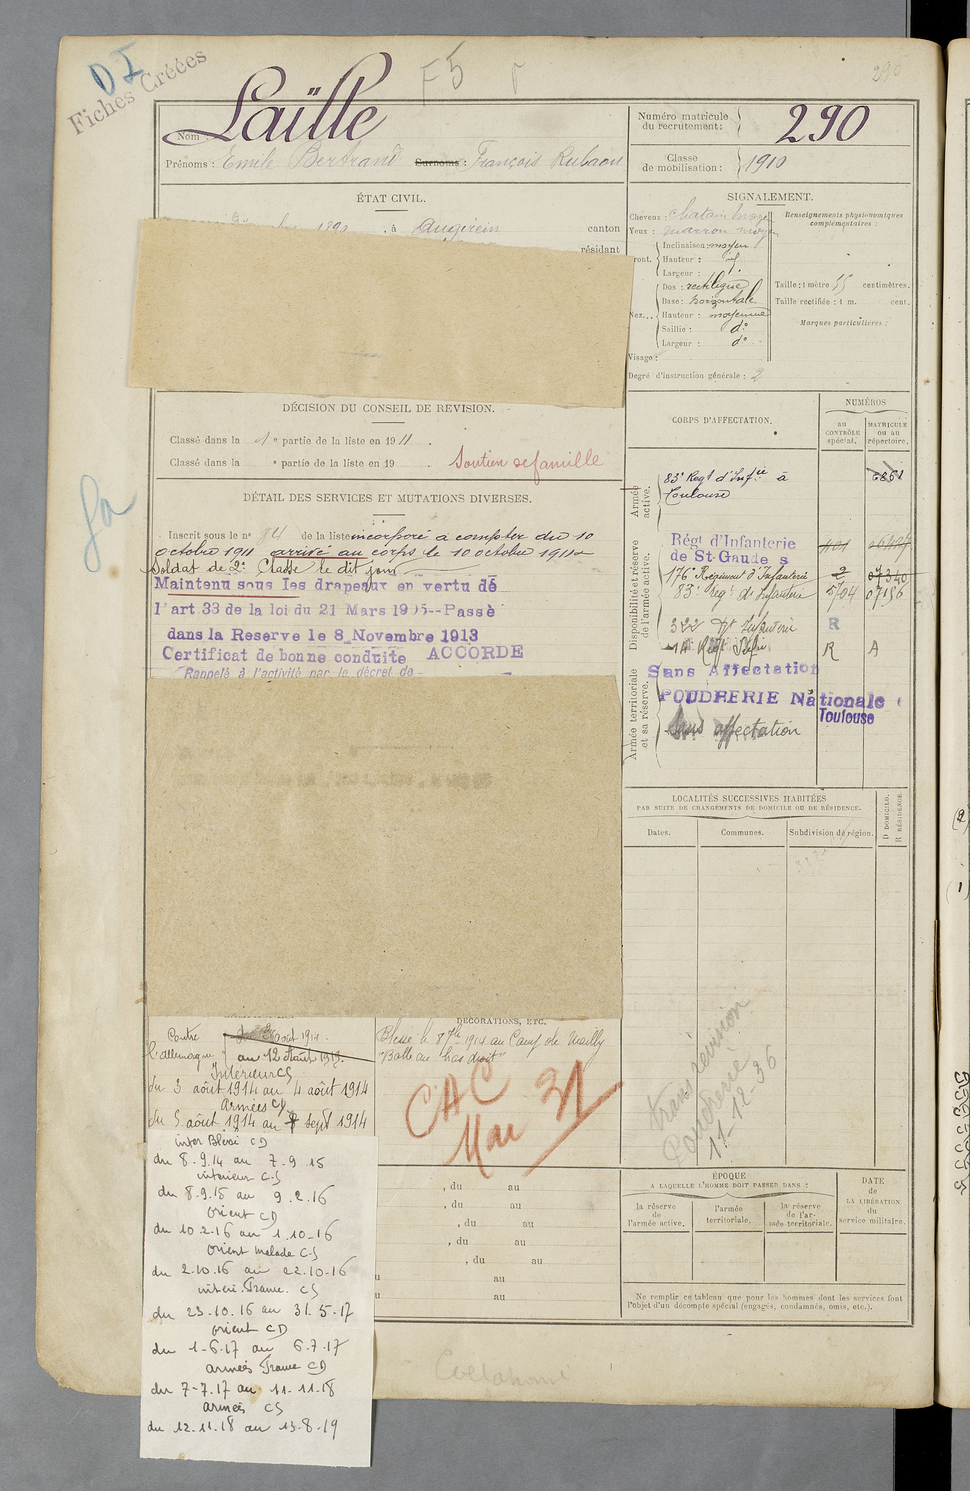 DI
Fiches Créées
F5
290
Nom :
Laïlle
Prénoms : Emile Bertrand Surnoms : François
Numéro matricule
du recrutement :
290
Classe
de mobilisation :
1910
ÉTAT CIVIL.
, à Augirein canton
résidant
SIGNALEMENT.
Cheveux : chatain moyen
Yeux : marron moyen
Front.
Inclinaison : moyen
Hauteur :
Largeur :
Nez...
Dos : rectiligne
Base : horizontale
Hauteur : moyenne
Saillie : d°
Largeur : d°
Visage :
Degré d'instruction générale : 2
Renseignements physionomiques
complémentaires :
Taille : 1 mètre 55 centimètres.
Taille rectifiée : 1 m. cent.
Marques particulières :
DÉCISION DU CONSEIL DE REVISION.
Classé dans la 1e partie de la liste en 1911 .
Classé dans la e partie de la liste en 19 .
Soutien de famille
DÉTAIL DES SERVICES ET MUTATIONS DIVERSES.
Inscrit sous le n° 84 de la liste incorporé à compter du 10
octobre 1911 arrivé au corps le 10 octobre 1911
Soldat de 2e Classe le dit jour
Maintenu sous les drapeaux en vertu de
l'art 33 de la loi du 21 Mars 1905--Passé
dans la Reserve le 8 Novembre 1913
Certificat de bonne conduite ACCORDE
Rappelé à l'activité par le décret de
CORPS D'AFFECTATION.
NUMÉROS
au
CONTRÔLE
spécial.
MATRICULE
ou au
répertoire.
Armée
active.
83e Regt d'Infie à
Toulouse
Disponibilité et réserve
de l'armée active.
Régt d'Infanterie
de St-Gaudens
176e Régiment d'Infanterie
83e reg' d'Infanterie 5704 07156
322 Rt Infanterie R
R A
Armée territoriale
et sa réserve.
Sans Affectation
POUDRERIE Nationale
Toulouse
Sans affectation
LOCALITÉS SUCCESSIVES HABITÉES
PAR SUITE DE CHANGEMENTS DE DOMICILE OU DE RÉSIDENCE.
Dates.
Communes.
Subdivision de région.
D DOMICILE.
R RÉSIDENCE.
DÉCORATIONS, ETC.
Contre
l'allemagne
août 1914.
au 12 août 1919.
Intérieur CS
du 3 août 1914 au 4 août 1914
Armées CD
du 5 août 1914 au 7 sept 1914
inter Blessé CD
du 8.9.14 au 7.9.15
intérieur C.S
du 8.9.15 au 9.2.16
orient CD
du 10.2.16 au 1.10.16
orient malade C.S
du 2.10.16 au 22.10.16
intéri. France. CS
du 23.10.16 au 31.5.17
orient CD
du 1-6.17 au 6.7.17
armées France CD
du 7-7.17 au 11.11.18
armées CS
du 12.11.18 au 13.8.19
Blessé le 8 7bre 1914 au Camp de Mailly
"Balle au bras droit"
CAC 31
Mai
trans révision
Poudrerie
11-12-36
, du au
, du au
, du au
, du au
, du au
au
au
ÉPOQUE
A LAQUELLE L'HOMME DOIT PASSER DANS :
la réserve
de
l'armée active.
l'armée
territoriale.
la réserve
de l'ar-
mée territoriale.
DATE
de
LA LIBÉRATION
du
service militaire.
Ne remplir ce tableau que pour les hommes dont les services font
l'objet d'un décompte spécial (engagés, condamnés, omis, etc.).